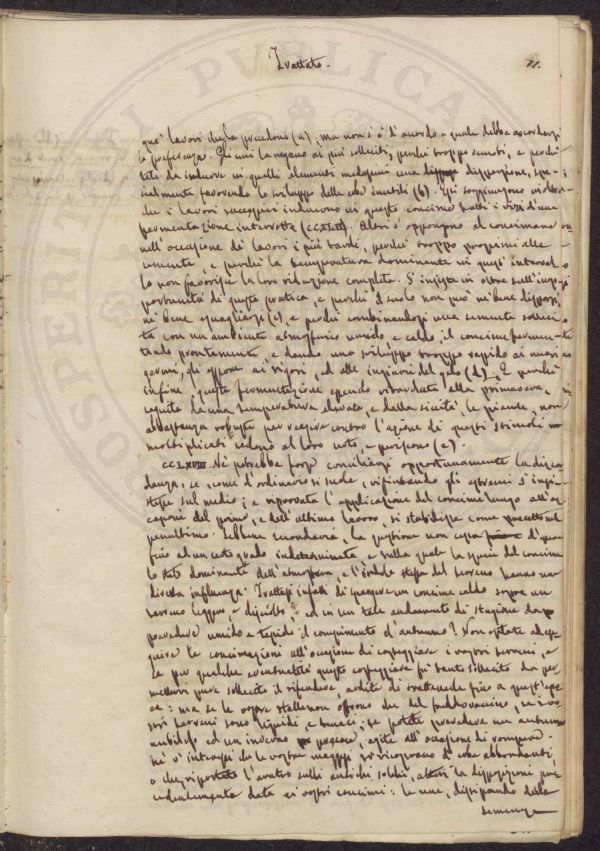 Trattato.
71.
que' lavori che la precedono (a), ma non s'è d'accordo a quale debba accordarsi
la preferenza. Gli uni la negano ai più solleciti, perchè troppo remoti, e perchè
tali da indurre in quelli elementi medesimi una disperzione, spe-
cialmente favorendo lo sviluppo delle erbe inutili (b). Essi soggiungono inoltre
che i lavori successivi inducono in questo concime tutti i vizi d'una
fermentazione interrotta. Altri s'oppongono al concimare
nell'occasione de' lavori i più tardi, perchè troppo prossimi alle
semente, e perchè la temperatura dominante in questi interval-
lo non favorisce la loro riduzione completa. S'insiste in oltre sull'inop-
portunità di questa pratica, e perchè il suolo non può nè bene disporsi
nè bene eguagliarsi (c), e perchè combinandosi una semente solleci-
ta con un ambiente atmosferico umido, e caldo, il concime fermen-
tando prontamente, e dando uno sviluppo troppo rapido ai nuovi
germi, gli espone ai rigori, ed alle ingiurie del gelo (d). E perchè
infine, questa fermentazione essendo ritardata alla primavera,
seguita da una temperatura elevata, e dalla siccità le piante, non
abbastanza robuste per reagire contro l'azione di questi stimoli
moltiplicati cedono al loro urto, e periscono (e).
CCLXVIII. Si potrebbe forse conciliarsi opportunamente la discor-
danza, se, come d'ordinario si suole, rifiutando gli estremi s'insi-
stesse sul medio; e riprovata l'applicazione del concime lungo all'oc-
casione del primo, e dell'ultimo lavoro, si stabilisse come
penultimo. Sebbene secondaria, la questione non cessa d'essere
fino ad un certo grado indeterminata e sulla quale la specie del concime
lo stato dominante dell'atmosfera, e l'indole stessa del terreno hanno una
diretta influenza. Trattasi infatti di spargere un concime caldo sopra un
terreno leggero, e disciolto, ed in un tale andamento di stagione da
prevedere umido e tepido il compimento d'autunno? Non esitate ad ese-
guire la concimazione all'occasione di i vostri terreni, e
se per qualche eventualità questo fu tanto sollecito da per-
mettervi pure sollecito il rifendere, ardite di trattenerla fino a quest'epo-
ca: ma se le vostre stalle non offrono che del puddo vaccino, se i vo-
stri terreni sono liquidi, e tenaci; se potete prevedere un autunno
nubiloso ed un inverno precoce, agite all'occasione di rompere.
Nè v'incresca che le vostre maggesi si ricoprano di erbe abbondanti,
o che, riportato l'aratro sulli antichi solchi, alteri la disposizione pre-
cedentemente data ai vostri concimi: le une, dissipando della
semenza